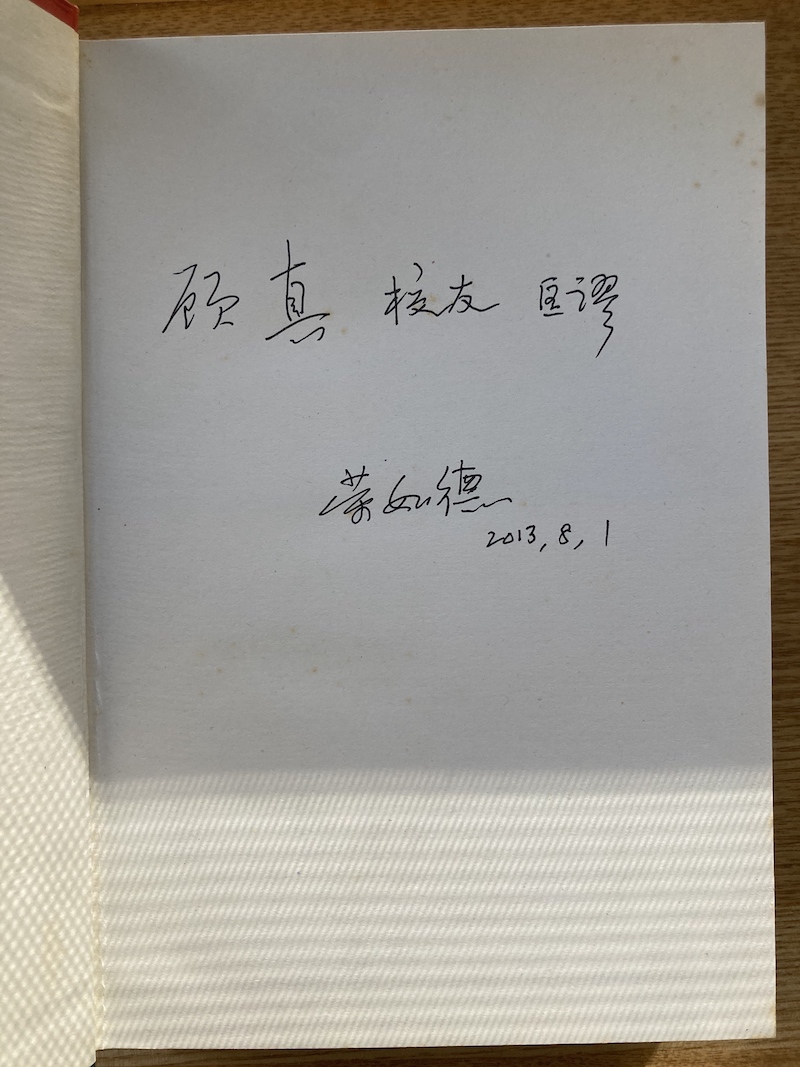 顾真 校友 匡谬
荣如德
2013,8,1